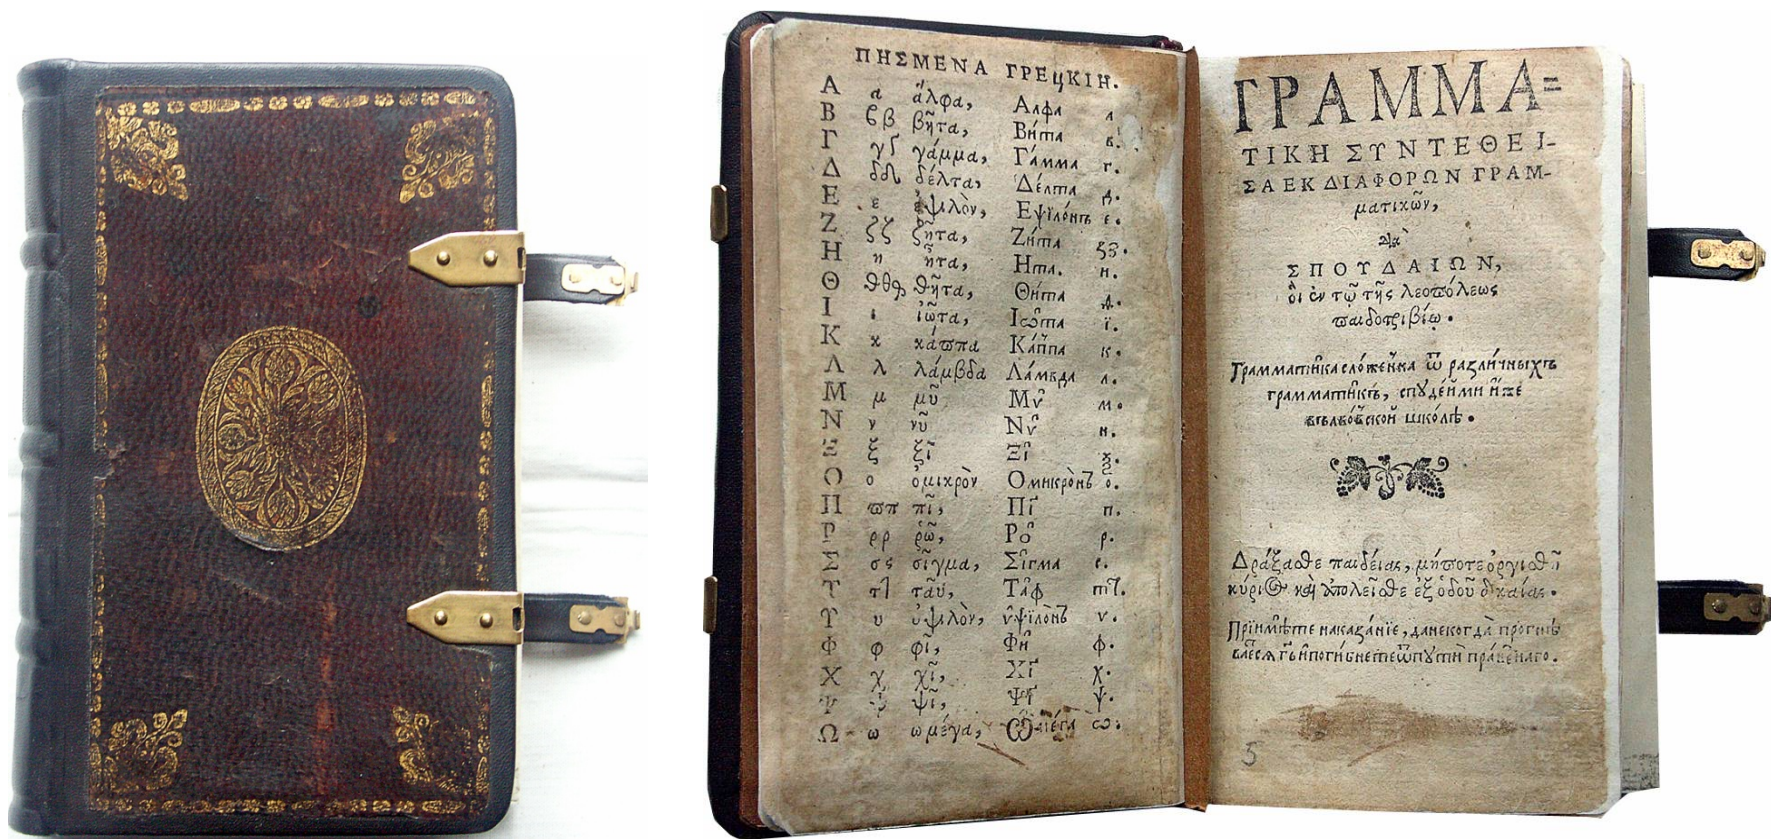 ПИСМЕНА ГРЕЦКІИ.
Α α ἄλφα, Алфа а
Β ϐβ βῆτα, Вита в.
Γ γ γάμμα, Га́мма г.
Δ δ δέλτα, Де́лта д.
Ε ε ἐψιλὸν, Еѱїло́нъ е.
Ζ ζζ ζῆτα, Зи́та ѕз.
Η η ἦτα, Ита. и.
Θ ϑθ ϑῆτα, Ѳи́та ѳ.
Ι ι ἰῶτα, Іѡ҆та ї.
Κ κ κάππα Ка́ппа к.
Λ λ λάμβδα Ла́мвда л.
Μ μ μῦ Мѵ̑ м.
Ν ν νῦ Нѵ̑ н.
Ξ ξ ξῖ Ѯі̑ ѯ.
Ο ο ὀμικρὸν Омикро̀нъ о.
Π ϖπ πῖ, Пі̑ п.
Ρ ρρ ῥῶ, Ро̑ р.
Σ σς σῖγμα, Сі̑гма с.
Τ τ ταῦ, Та̑ф т.
Υ υ ὐψιλὸν, ѵ҆ѱїло́нъ ѵ.
Φ φ φῖ, Фи̑ ф.
Χ χ χῖ, Хі̑ х.
Ψ ψ ψῖ, Ѱі̑ ѱ.
Ω ω ωμέγα, Ѡмега ѡ.
ΓΡΑΜΜΑ=
ΤΙΚΗ ΣΥΝΤΕΘΕΙ-
ΣΑ ΕΚ ΔΙΑΦΟΡΩΝ ΓΡΑΜ-
ματικῶν,
ΣΠΟΥΔΑΙΩΝ,
οἱ ἐν τῷ τῆς λεοπόλεως
παιδοτριβίῳ.
Грамматіка сложенна ѿ различныхъ
грамматікъ, спудейми иже
въ львовской школѣ.
Δράξασθε παιδείας, μήποτε ὀργισθῇ
κύριος καὶ ἀπολεῖσθε ἐξ ὁδοῦ δικαίας.
Пріимѣте наказаніе, да некогда прогнѣ
ваеся гь и погибнете ѿ пути праведнаго.
5